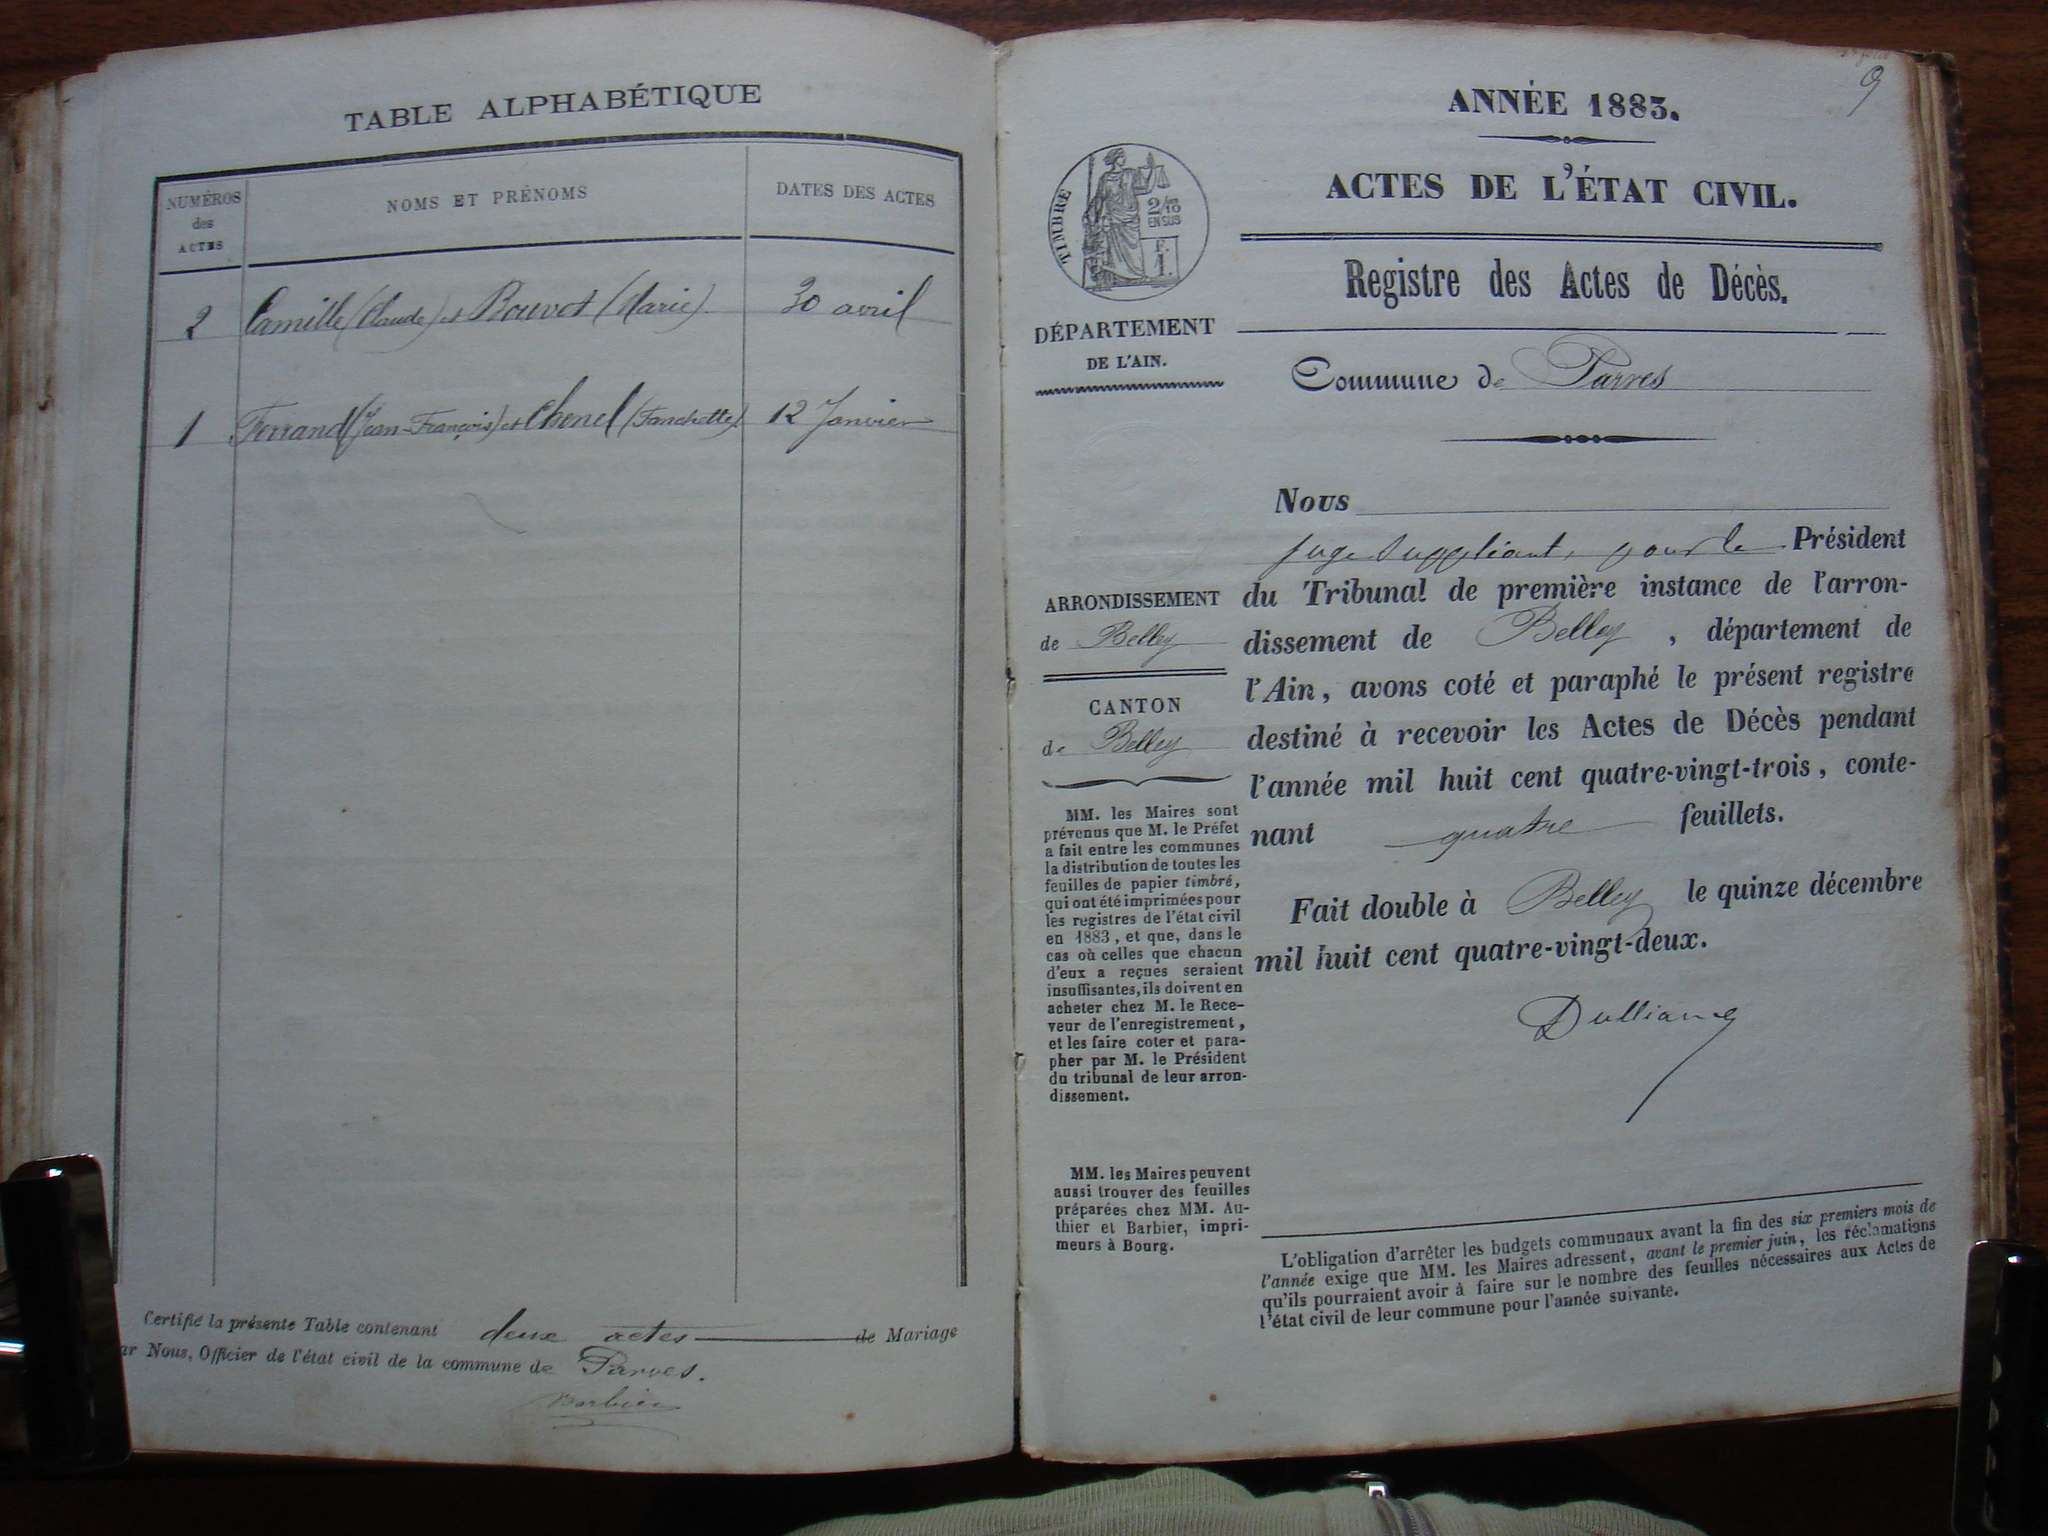 TABLE ALPHABÉTIQUE
NUMÉROS des ACTES
NOMS ET PRÉNOMS
DATES DES ACTES
2 Camille (Claude) et Bouvot (Marie) 30 avril
1 Ferrand (Jean-François) et Chenel (Fanchette) 12 Janvier
Certifié la présente Table contenant deux actes de Mariage
ar Nous, Officier de l'état civil de la commune de Parves.
Barbier
9
ANNÉE 1883.
ACTES DE L'ÉTAT CIVIL.
TIMBRE
2/10
EN SUS
F.
1.
Registre des Actes de Décès.
DÉPARTEMENT
DE L'AIN.
Commune de Parves
Nous
juge suppléant, pour le Président
du Tribunal de première instance de l'arron-
dissement de Belley, département de
l'Ain, avons coté et paraphé le présent registre
destiné à recevoir les Actes de Décès pendant
l'année mil huit cent quatre-vingt-trois, conte-
nant quatre feuillets.
Fait double à Belley le quinze décembre
mil huit cent quatre-vingt-deux.
ARRONDISSEMENT
de Belley
CANTON
de Belley
MM. les Maires sont
prévenus que M. le Préfet
a fait entre les communes
la distribution de toutes les
feuilles de papier timbré,
qui ont été imprimées pour
les registres de l'état civil
en 1883, et que, dans le
cas où celles que chacun
d'eux a reçues seraient
insuffisantes, ils doivent en
acheter chez M. le Rece-
veur de l'enregistrement,
et les faire coter et para-
pher par M. le Président
du tribunal de leur arron-
dissement.
MM. les Maires peuvent
aussi trouver des feuilles
préparées chez MM. Au-
thier et Barbier, impri-
meurs à Bourg.
L'obligation d'arrêter les budgets communaux avant la fin des six premiers mois de
l'année exige que MM. les Maires adressent, avant le premier juin, les réclamations
qu'ils pourraient avoir à faire sur le nombre des feuilles nécessaires aux Actes de
l'état civil de leur commune pour l'année suivante.